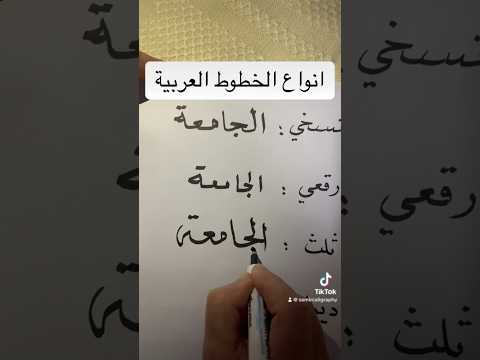 انواع الخطوط العربية
نسخي : الجامعة
رقعي : الجامعة
ثلث : الجامعة
TikTok